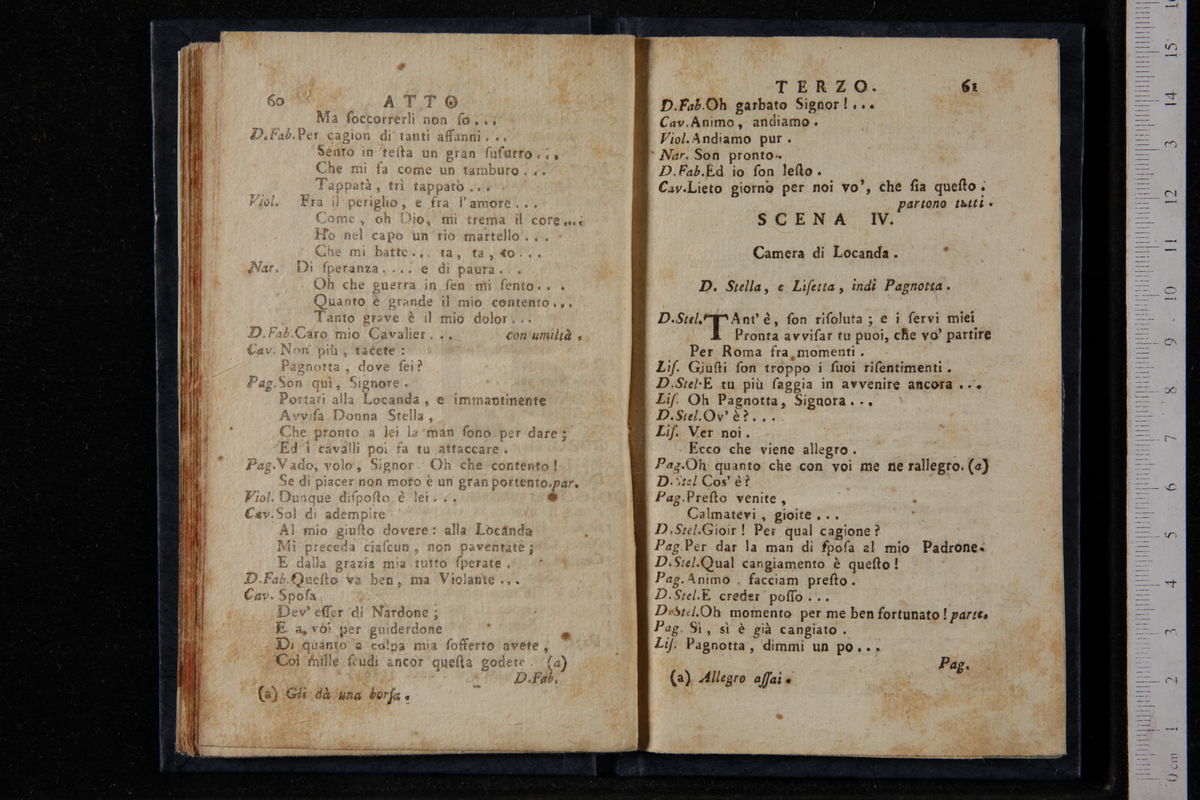 60 ATTO
Ma ſoccorrerli non ſo...
D.Fab.Per cagion di tanti affanni...
Sento in teſta un gran ſuſurro...
Che mi fa come un tamburo...
Tappatà, trì tappatò...
Viol. Fra il periglio, e fra l'amore...
Come, oh Dio, mi trema il core....
Ho nel capo un rio martello...
Che mi batte... ta, ta, to...
Nar. Di ſperanza.... e di paura..
Oh che guerra in ſen mi ſento...
Quanto è grande il mio contento...
Tanto grave è il mio dolor...
D.Fab.Caro mio Cavalier... con umiltà.
Cav. Non più, tacete:
Pagnotta, dove ſei?
Pag.Son quì, Signore.
Portati alla Locanda, e immantinente
Avviſa Donna Stella,
Che pronto a lei la man ſono per dare;
Ed i cavalli poi fa tu attaccare.
Pag.Vado, volo, Signor. Oh che contento!
Se di piacer non moro è un gran portento.par.
Viol. Dunque diſpoſto è lei...
Cav.Sol di adempire
Al mio giuſto dovere: alla Locanda
Mi preceda ciaſcun, non paventate;
E dalla grazia mia tutto ſperate.
D.Fab.Queſto va ben, ma Violante...
Cav. Spoſa
Dev' eſſer di Nardone;
E a voi per guiderdone
Di quanto a colpa mia ſofferto avete,
Coi mille ſcudi ancor queſta godete. (a)
D.Fab.
(a) Gli dà una borſa.
TERZO. 61
D.Fab.Oh garbato Signor!...
Cav.Animo, andiamo.
Viol.Andiamo pur.
Nar. Son pronto..
D.Fab.Ed io ſon leſto.
Cav.Lieto giorno per noi vo', che ſia queſto.
partono tutti.
SCENA IV.
Camera di Locanda.
D. Stella, e Liſetta, indi Pagnotta.
D.Stel.TAnt' è, ſon riſoluta; e i ſervi miei
Pronta avviſar tu puoi, che vo' partire
Per Roma fra momenti.
Liſ. Giuſti ſon troppo i ſuoi riſentimenti.
D.Stel.E tu più ſaggia in avvenire ancora...
Liſ. Oh Pagnotta, Signora...
D.Stel.Ov' è?...
Liſ. Ver noi.
Ecco che viene allegro.
Pag.Oh quanto che con voi me ne rallegro.(a)
D.Stel Cos' è?
Pag.Preſto venite,
Calmatevi, gioite...
D.Stel.Gioir! Per qual cagione?
Pag.Per dar la man di ſpoſa al mio Padrone.
D.Stel.Qual cangiamento è queſto!
Pag.Animo, facciam preſto.
D.Stel.E creder poſſo...
D.Stel.Oh momento per me ben fortunato! parte.
Pag. Sì, sì è già cangiato.
Liſ. Pagnotta, dimmi un po...
Pag.
(a) Allegro aſſai.
0 cm 1 2 3 4 5 6 7 8 9 10 11 12 13 14 15